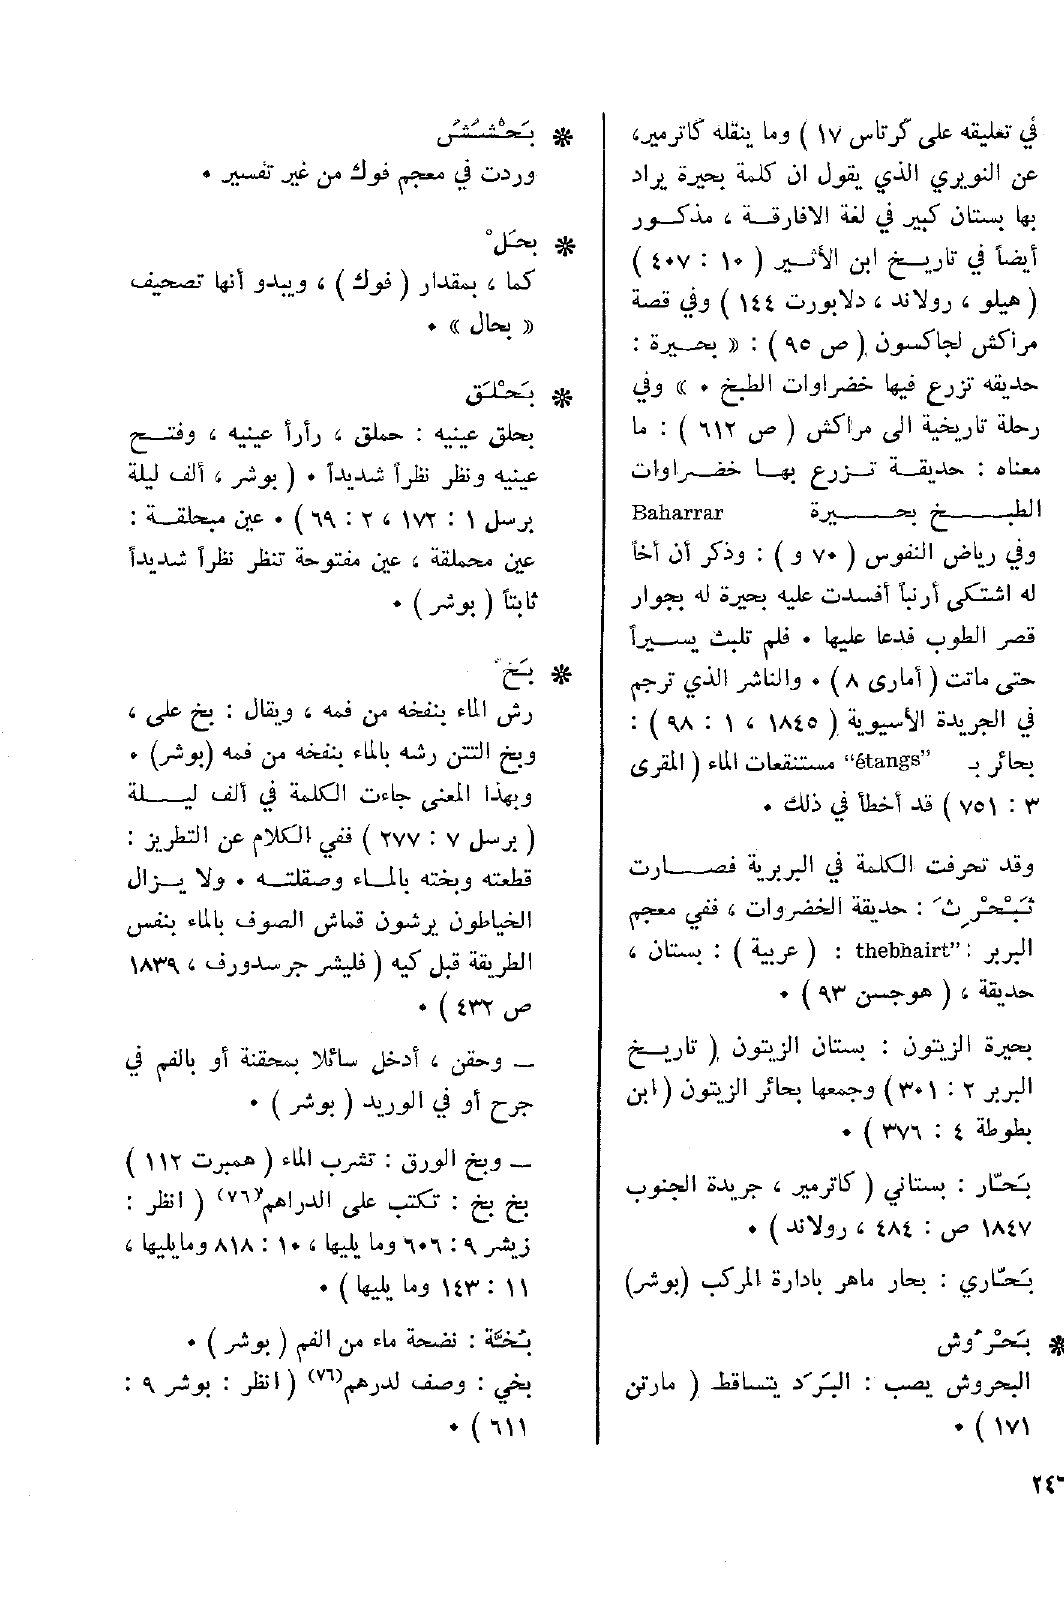 في تعليقه على كرتاس ١٧ ) وما ينقله كاترمير،
عن النويري الذي يقول ان كلمة بحيرة يراد
بها بستان كبير في لغة الافارقة ، مذكور
أيضاً في تاريخ ابن الأثير ( ١٠ : ٤٠٧ )
( هيلو ، رولاند ، دلابورت ١٤٤ ) وفي قصة
مراكش لجاكسون ( ص ٩٥ ) : « بحيرة :
حديقه تزرع فيها خضراوات الطبخ ٠ » وفي
رحلة تاريخية الى مراكش ( ص ٦١٢ ) : ما
معناه : حديقة تزرع بها خضراوات
الطبخ بحيرة Baharrar
وفي رياض النفوس ( ٧٠ و ) : وذكر أن أخاً
له اشتكى أرنباً أفسدت عليه بحيرة له بجوار
قصر الطوب فدعا عليها ٠ فلم تلبث يسيراً
حتى ماتت ( أمارى ٨ ) ٠ والناشر الذي ترجم
في الجريدة الأسيوية ( ١٨٤٥ ، ١ : ٩٨ ) :
بحائر بـ “étangs” مستنقعات الماء ( المقرى
٣ : ٧٥١ ) قد أخطأ في ذلك ٠
وقد تحرفت الكلمة في البربرية فصارت
ثَبْحْرِثَ : حديقة الخضروات ، ففي معجم
البربر : “thebhairt : ( عربية ) : بستان ،
حديقة ، ( هوجسن ٩٣ ) ٠
بحيرة الزيتون : بستان الزيتون ( تاريخ
البربر ٢ : ٣٠١ ) وجمعها بحائر الزيتون ( ابن
بطوطة ٤ : ٣٧٦ ) ٠
بَحّار : بستاني ( كاترمير ، جريدة الجنوب
١٨٤٧ ص : ٤٨٤ ، رولاند ) ٠
بَحّاري : بحار ماهر بادارة المركب (بوشر)
❋ بَحْرُوش
البحروش يصب : البَرَد يتساقط ( مارتن
١٧١ ) ٠
٢٤٦
❋ بَحْشُشُ
وردت في معجم فوك من غير تفسير ٠
❋ بحَلْ
كما ، بمقدار ( فوك ) ، ويبدو أنها تصحيف
« بحال » ٠
❋ بَحْلَق
بحلق عينيه : حملق ، رأرأ عينيه ، وفتح
عينيه ونظر نظراً شديداً ٠ ( بوشر ، ألف ليلة
برسل ١ : ١٧٢ ، ٢ : ٦٩ ) ٠ عين مبحلقة :
عين محملقة ، عين مفتوحة تنظر نظراً شديداً
ثابتاً ( بوشر ) ٠
❋ بَخّ
رش الماء بنفخه من فمه ، ويقال : بخ على ،
وبخ التتن رشه بالماء بنفخه من فمه (بوشر) ٠
وبهذا المعنى جاءت الكلمة في ألف ليلة
( برسل ٧ : ٢٧٧ ) ففي الكلام عن التطريز :
قطعته وبخته بالماء وصقلته ٠ ولا يزال
الخياطون يرشون قماش الصوف بالماء بنفس
الطريقة قبل كيه ( فليشر جرسدورف ، ١٨٣٩
ص ٤٣٢ ) ٠
— وحقن ، أدخل سائلا بمحقنة أو بالفم في
جرح أو في الوريد ( بوشر ) ٠
— وبخ الورق : تشرب الماء ( همبرت ١١٢ )
بخ بخ : تكتب على الدراهم(٧٦) ( انظر :
زيشر ٩ : ٦٠٦ وما يليها ، ١٠ : ٨١٨ ومايليها ،
١١ : ١٤٣ وما يليها ) ٠
بَخَّة : نضحة ماء من الفم ( بوشر ) ٠
بخي : وصف لدرهم(٧٦) ( انظر : بوشر ٩ :
٦١١ ) ٠